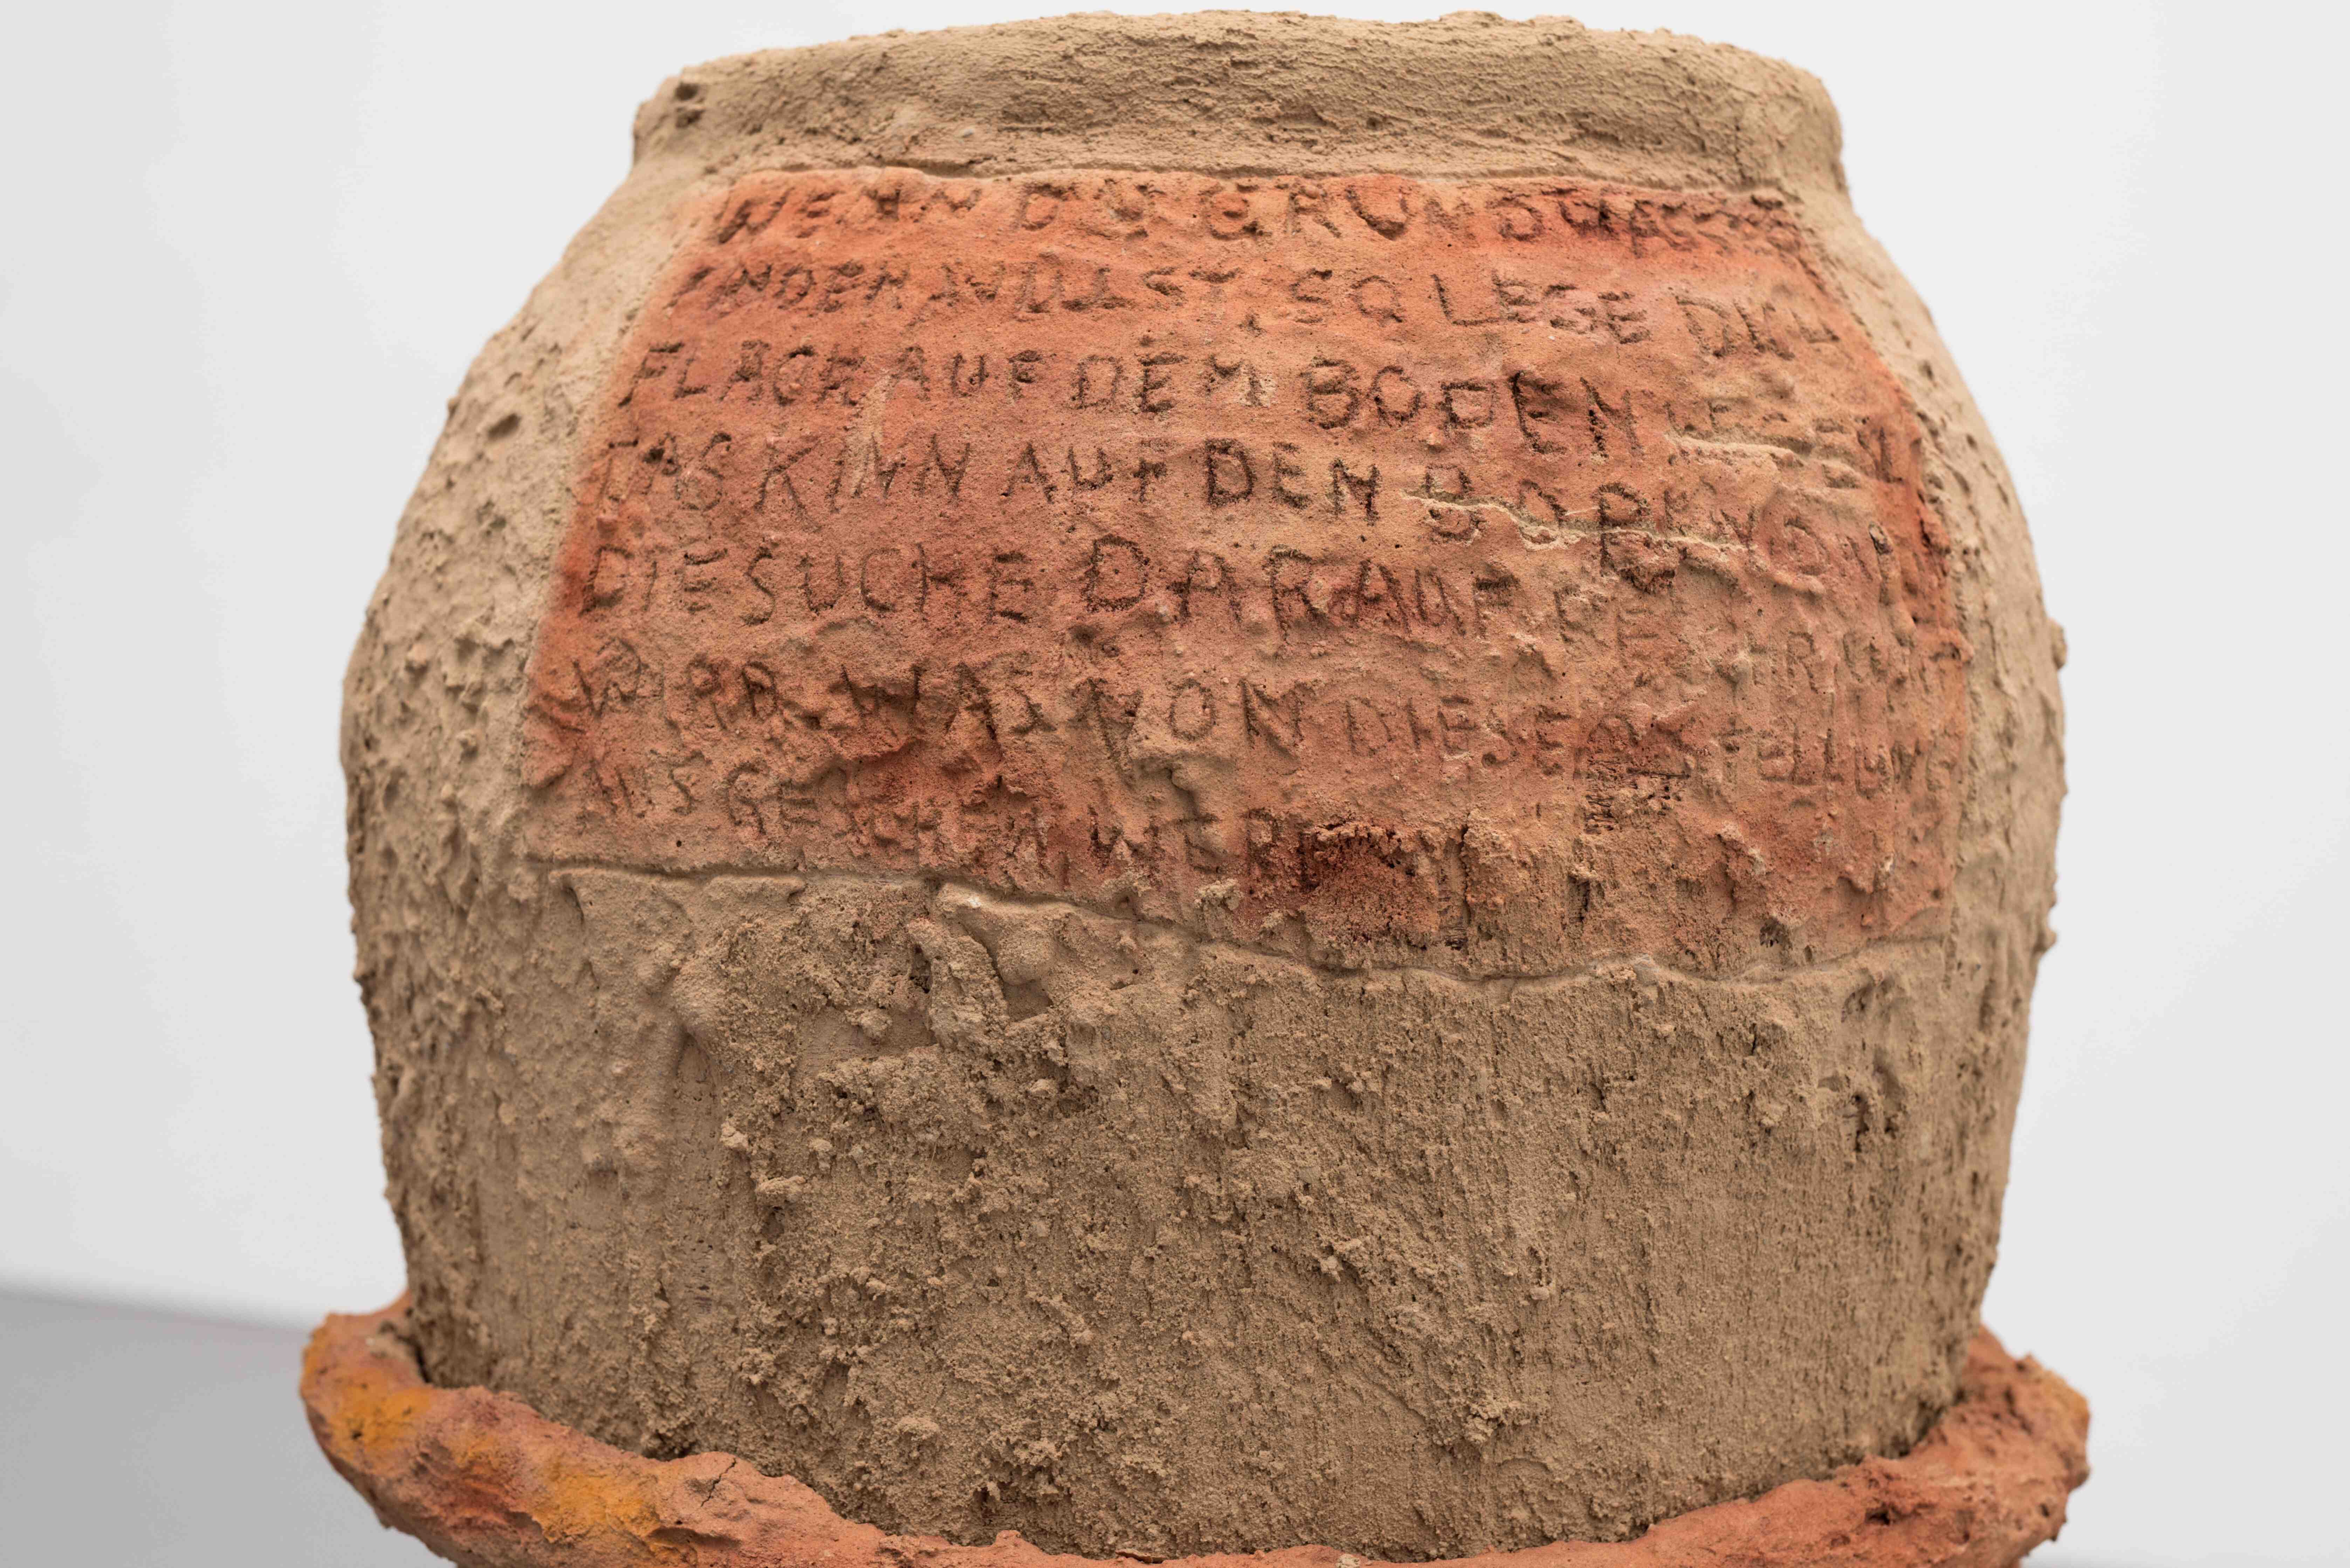 WENN DU GRUNDWASSER
FINDEN WILLST SO LEGE DICH
FLACH AUF DEM BODEN
DAS KINN AUF DEN BODEN
DIE SUCHE DARAUF
WIRD MAN VON DIESER STELLUNG
AUSGEHEN WERDEN